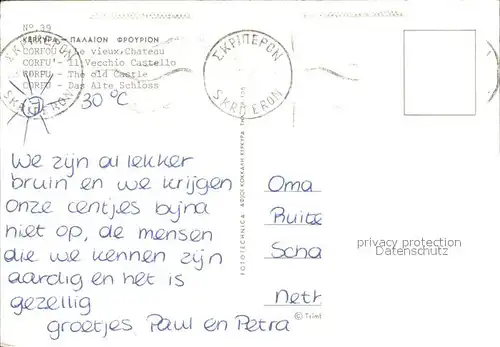 Nº 39
ΚΕΡΚΥΡΑ - ΠΑΛΑΙΟΝ ΦΡΟΥΡΙΟΝ
CORFOU - Le vieux Chateau
CORFU - Il Vecchio Castello
CORFU - The old Castle
CORFU - Das Alte Schloss
30 °C
ΣΚΡΙΠΕΡΟΝ
We zijn al lekker
bruin en we krijgen
onze centjes bijna
niet op, de mensen
die we kennen zijn
aardig en het is
gezellig
groetjes Paul en Petra
FOTOTECHNICA
Oma
Ruite
Scha
Neth
privacy protection
Datenschutz